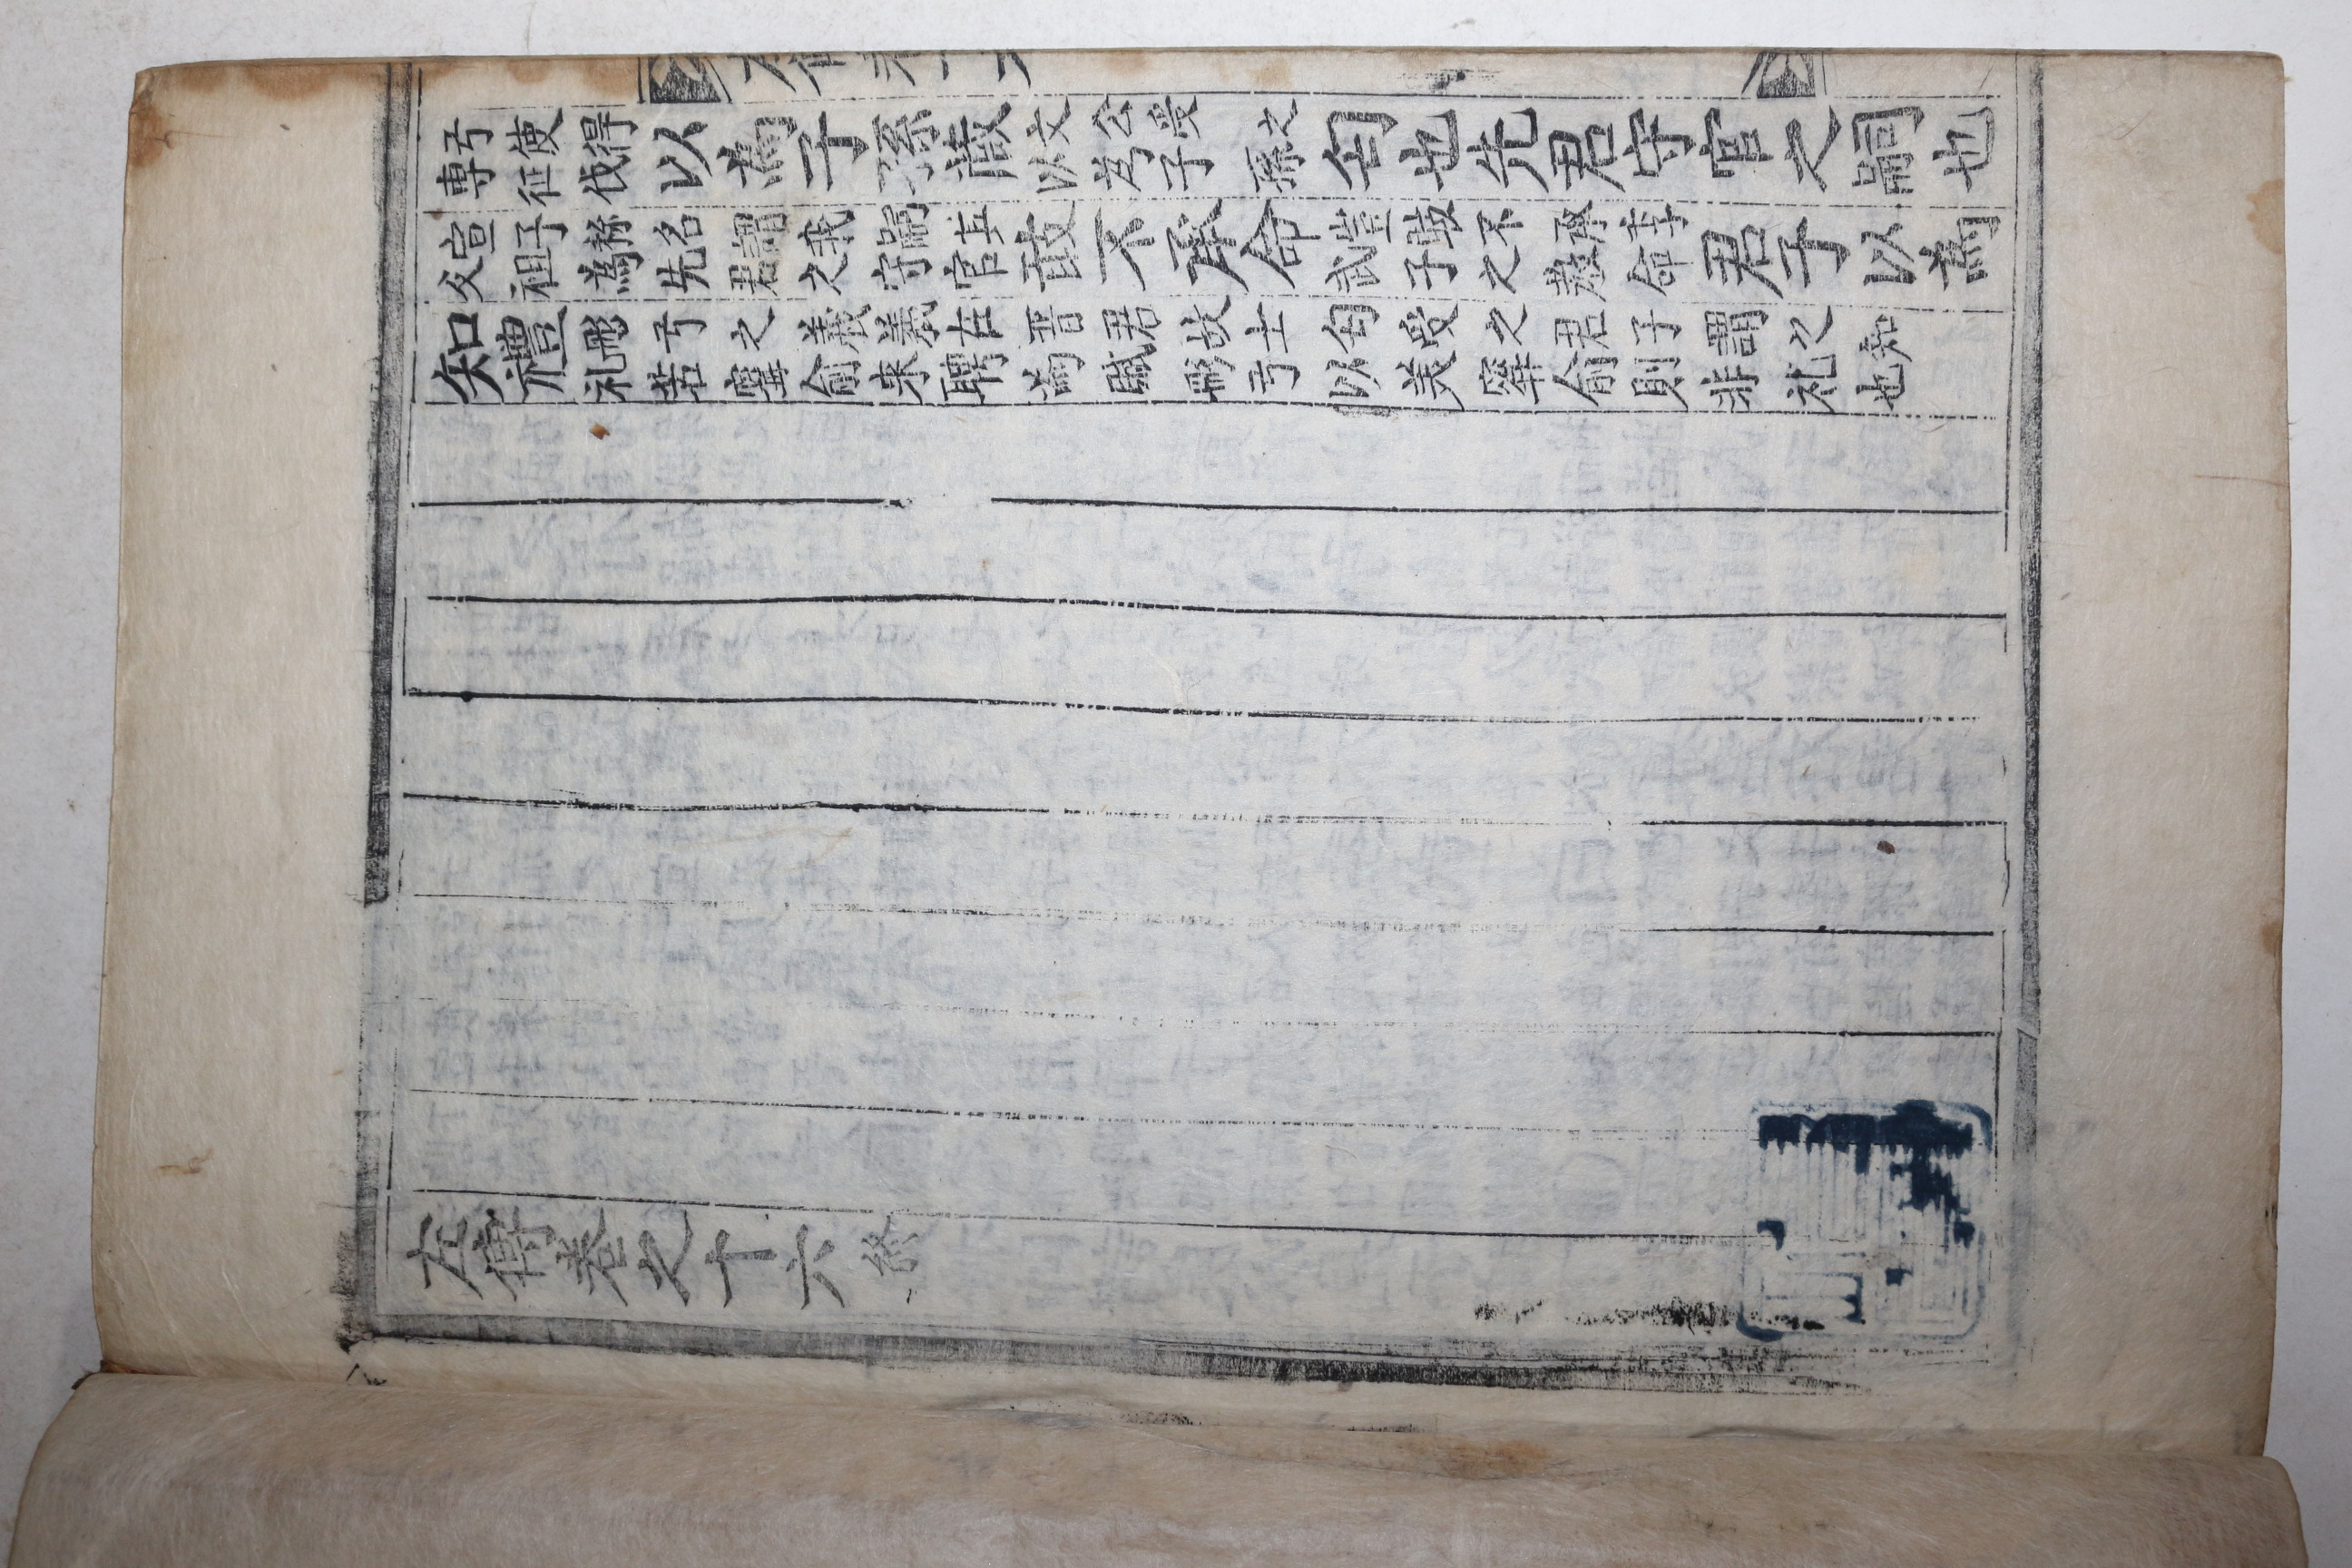 弓使得専征伐以為子孫蔵文公受之以為子孫匄也先君守官之嗣也
宣子称名謂我嗣其父祖為先君之守官敢不承命豈敢不承季武子之教命君子以為
知禮彤弓之義義在晋君故士匄受之君子謂之知礼若寗俞来聘為賦彤弓以美寗俞則非礼也
左傳卷之十六終